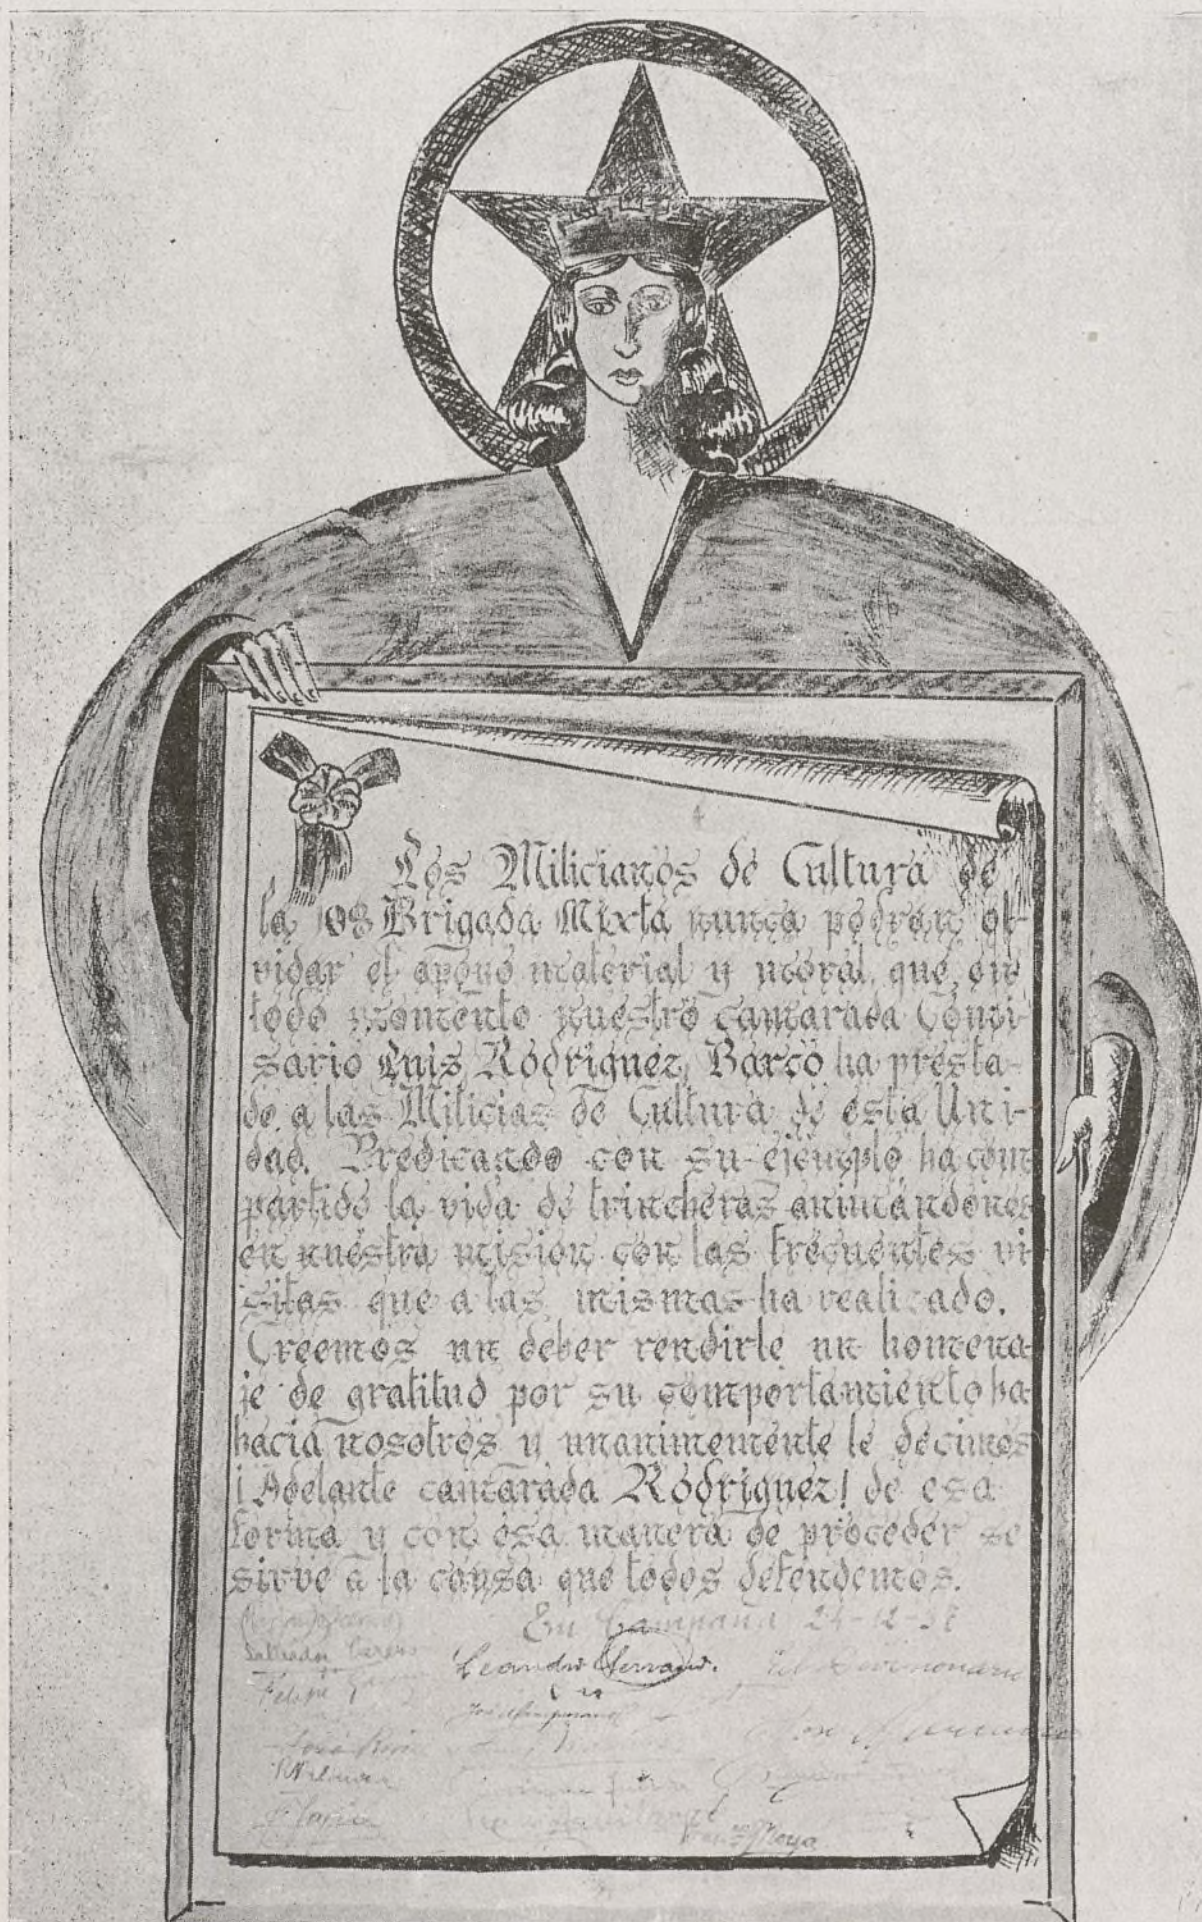 Los Milicianos de Cultura de
la 108 Brigada Mixta nunca podran ol-
vidar el apoyo material y moral que en
todo momento nuestro camarada Comi-
sario Luis Rodriguez Barco ha presta-
do a las Milicias de Cultura de esta Uni-
dad. Predicando con su ejemplo ha com
partido la vida de trincheras animándonos
en nuestra mision con las frecuentes vi-
sitas que a las mismas ha realizado.
Creemos un deber rendirle un homena-
je de gratitud por su comportamiento ha-
hacia nosotros y unanimemente le decimos
¡Adelante camarada Rodriguez! de esa
forma y con esa manera de proceder se
sirve a la causa que todos defendemos.
En Campaña 24-12-37
Salvador
Leandro Serrano.
Felipe
José
Moya